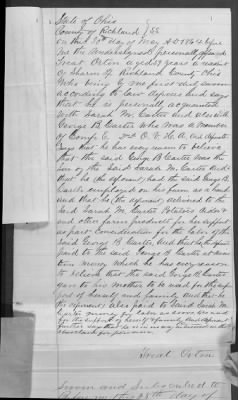 State of Ohio
County of Richland } SS
On this day of A.D. 1864 before
me the undersigned personally appeared
Treat Orton aged 57 years a resident
of Sharon Tp Richland County Ohio
who being by me first duly sworn
according to law deposes and says
that he is personally acquainted
with Sarah M. Carter and also with
George B. Carter who was a member
of Comp. E. O. V. M. C. and deponent
says that he has every reason to believe
that the said George B. Carter was the
son of the said Sarah M. Carter and
that he (the deponent) had the said George B.
Carter employed on his farm as a hand
and that he (the deponent) delivered to the
said Sarah M. Carter Potatoes
and other farm products for her support
as part consideration for the labor of the
said George B. Carter and that he the deponent
paid to the said George B. Carter at
times money which he has every reason
to believe that the said George B. Carter
gave to his Mother to be used for the support
of herself and family and that he
(the deponent) also paid to Said Sarah M.
Carter money for labor as above
for the support of herself
further says that he is in no way interested in the
claim for pension
Treat Orton
Sworn and Subscribed to
before me this 28th day of